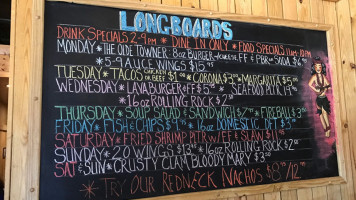 LONGBOARDS
DRINK SPECIALS 2-9PM * DINE IN ONLY * FOOD SPECIALS 11am-10pm
MONDAY * THE OLDE TOWNER: 8oz BURGER FF & PBR OR SODA $6
* 5-9 AUCE WINGS $15.99
TUESDAY * TACOS CHICKEN OR BEEF $1.00 * CORONA $3. * MARGARITA $5.
WEDNESDAY * LAVABURGER & FF $5 * SEAFOOD PLTR
* 16oz ROLLING ROCK $2.
THURSDAY * SOUP, SALAD & SANDWICH * FIREBALL $3
FRIDAY * FISH & CHIPS * 16oz DOMESTIC
SATURDAY * FRIED SHRIMP PLTR W/ FF & SLAW
SUNDAY * 20 WINGS * 16oz ROLLING ROCK $2.
SAT & SUN * CRUSTY CLAM BLOODY MARY $3.
* TRY OUR REDNECK NACHOS $8.99/12.99 *